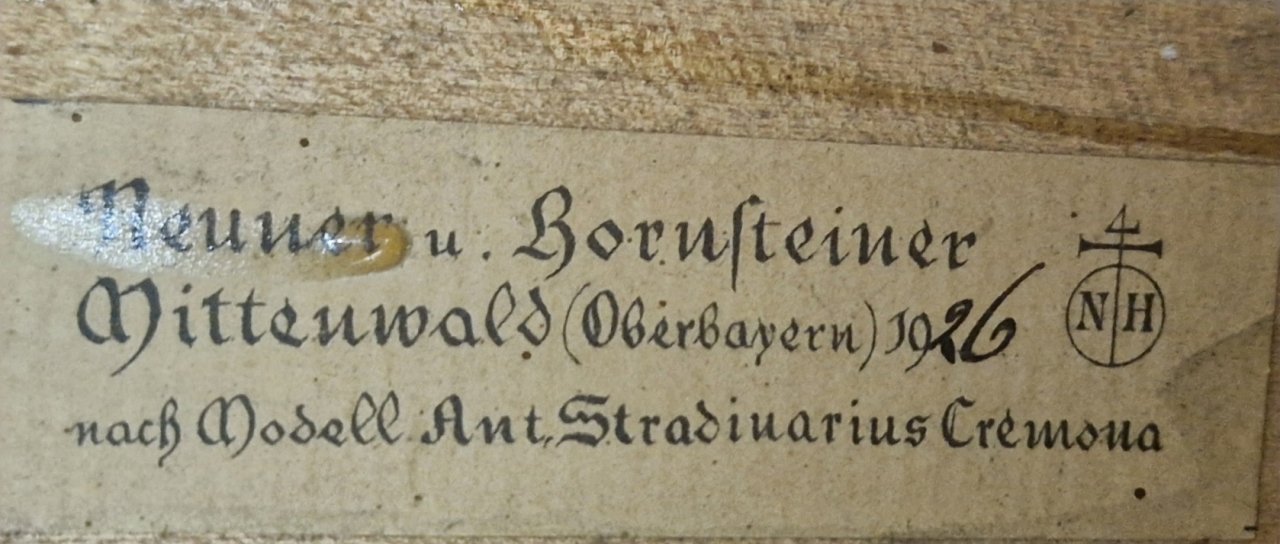 Neuner u. Hornsteiner
Mittenwald (Oberbayern) 1926
N H
nach Modell Ant. Stradiuarius Cremona